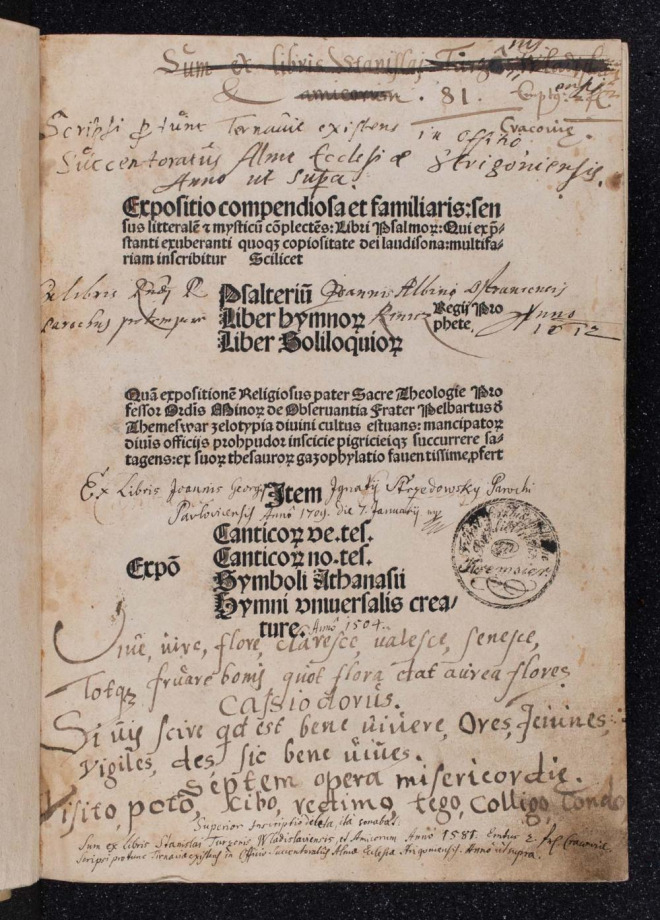 Sum ex libris Stanislaj
& amicorum . 81.
Scripsi p tunc Ternauie existens in officio Cracoviæ.
Succentoratus Alme Ecclesiæ Strigoniensis.
Anno ut supa.
Expositio compendiosa et familiaris: sen
sus litteralē ⁊ mysticū cōplectēs: Libri Psalmoꝝ: Qui exp̄-
stanti exuberanti quoqꝫ copiositate dei laudisona: multifa-
riam inscribitur Scilicet
Psalteriū
Liber hymnoꝝ Regij Pro
Liber Soliloquioꝝ phete.
Ex libris
Joannis Albini Ostrauiensis
Anno 1612
Quā expositionē Religiosus pater Sacre Theologie Pro
fessor Ordīs Minoꝝ de Obseruantia Frater Pelbartus ð
Themeswar zelotypia diuini cultus estuans: mancipatoꝝ
diuīs officijs prohpudor inscicie pigricieiqꝫ succurrere sa-
tagens: ex suoꝝ thesauroꝝ gazophylatio fauentissime ꝓfert
Ex Libris Joannis Georgij Ignatij Strzedowsky Parochi
Item
Pavloviensis Anno 1709. die 7. Januarij
Canticoꝝ ve. tes.
Canticoꝝ no. tes.
Expō Symboli Athanasii
Hymni vniuersalis crea/
ture. Anno 1504.
Kremsier
Viue, uire, flore, claresce, ualesce, senesce,
Totqꝫ fruare bonis quot flora etat aurea flores
Cassiodorus.
Si uis scire qd est bene uiuere, Ores, Jeiunes,
Vigiles, des sic bene uiues.
Septem opera misericordie.
Visito, poto, cibo, redimo, tego, Colligo, Condo
Superior Inscriptio deleta, ita sonabat:
Sum ex libris Stanislai Turzonis Wladislaviensis, et Amicorum Anno 1581. Emtus 2. Cracoviæ.
Scripsi pro tunc Ternaviæ existens in Officio Succentoratus Almæ Ecclesiæ Strigoniensis. Anno ut supra.